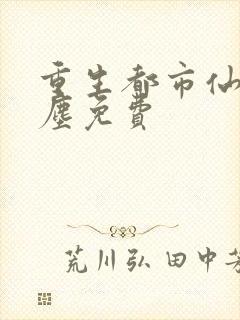 重生都市仙
塵免費
荒川弘田中芳